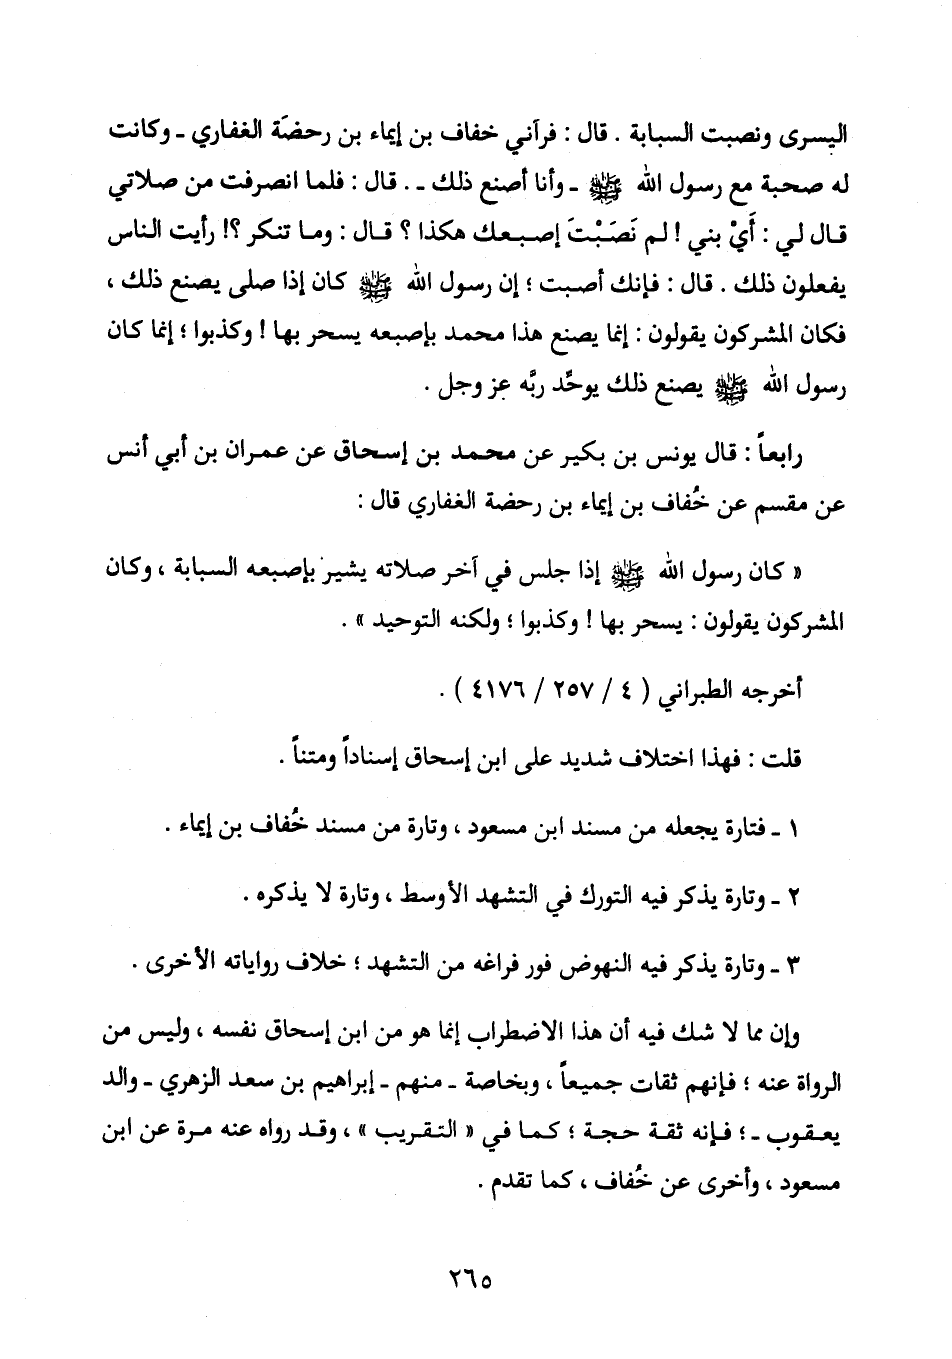 اليسرى ونصبت السبابة . قال : فرآني خفاف بن إيماء بن رحضَة الغفاري ـ وكانت
له صحبة مع رسول الله ﷺ ـ وأنا أصنع ذلك ـ . قال : فلما انصرفت من صلاتي
قال لي : أَيْ بني ! لم نَصَبْتَ إصبعك هكذا ؟ قال : وما تنكر ؟! رأيت الناس
يفعلون ذلك . قال : فإنك أصبت ؛ إن رسول الله ﷺ كان إذا صلى يصنع ذلك ،
فكان المشركون يقولون : إنما يصنع هذا محمد بإصبعه يسحر بها ! وكذبوا ؛ إنما كان
رسول الله ﷺ يصنع ذلك يوحِّد ربَّه عز وجل .
رابعاً : قال يونس بن بكير عن محمد بن إسحاق عن عمران بن أبي أنس
عن مقسم عن خُفاف بن إيماء بن رحضة الغفاري قال :
« كان رسول الله ﷺ إذا جلس في آخر صلاته يشير بإصبعه السبابة ، وكان
المشركون يقولون : يسحر بها ! وكذبوا ؛ ولكنه التوحيد » .
أخرجه الطبراني ( ٤ / ٢٥٧ / ٤١٧٦ ) .
قلت : فهذا اختلاف شديد على ابن إسحاق إسناداً ومتناً .
١ ـ فتارة يجعله من مسند ابن مسعود ، وتارة من مسند خُفاف بن إيماء .
٢ ـ وتارة يذكر فيه التورك في التشهد الأوسط ، وتارة لا يذكره .
٣ ـ وتارة يذكر فيه النهوض فور فراغه من التشهد ؛ خلاف رواياته الأخرى .
وإن مما لا شك فيه أن هذا الاضطراب إنما هو من ابن إسحاق نفسه ، وليس من
الرواة عنه ؛ فإنهم ثقات جميعاً ، وبخاصة ـ منهم ـ إبراهيم بن سعد الزهري ـ والد
يعقوب ـ ؛ فإنه ثقة حجة ؛ كما في « التقريب » ، وقد رواه عنه مرة عن ابن
مسعود ، وأخرى عن خُفاف ، كما تقدم .
٢٦٥